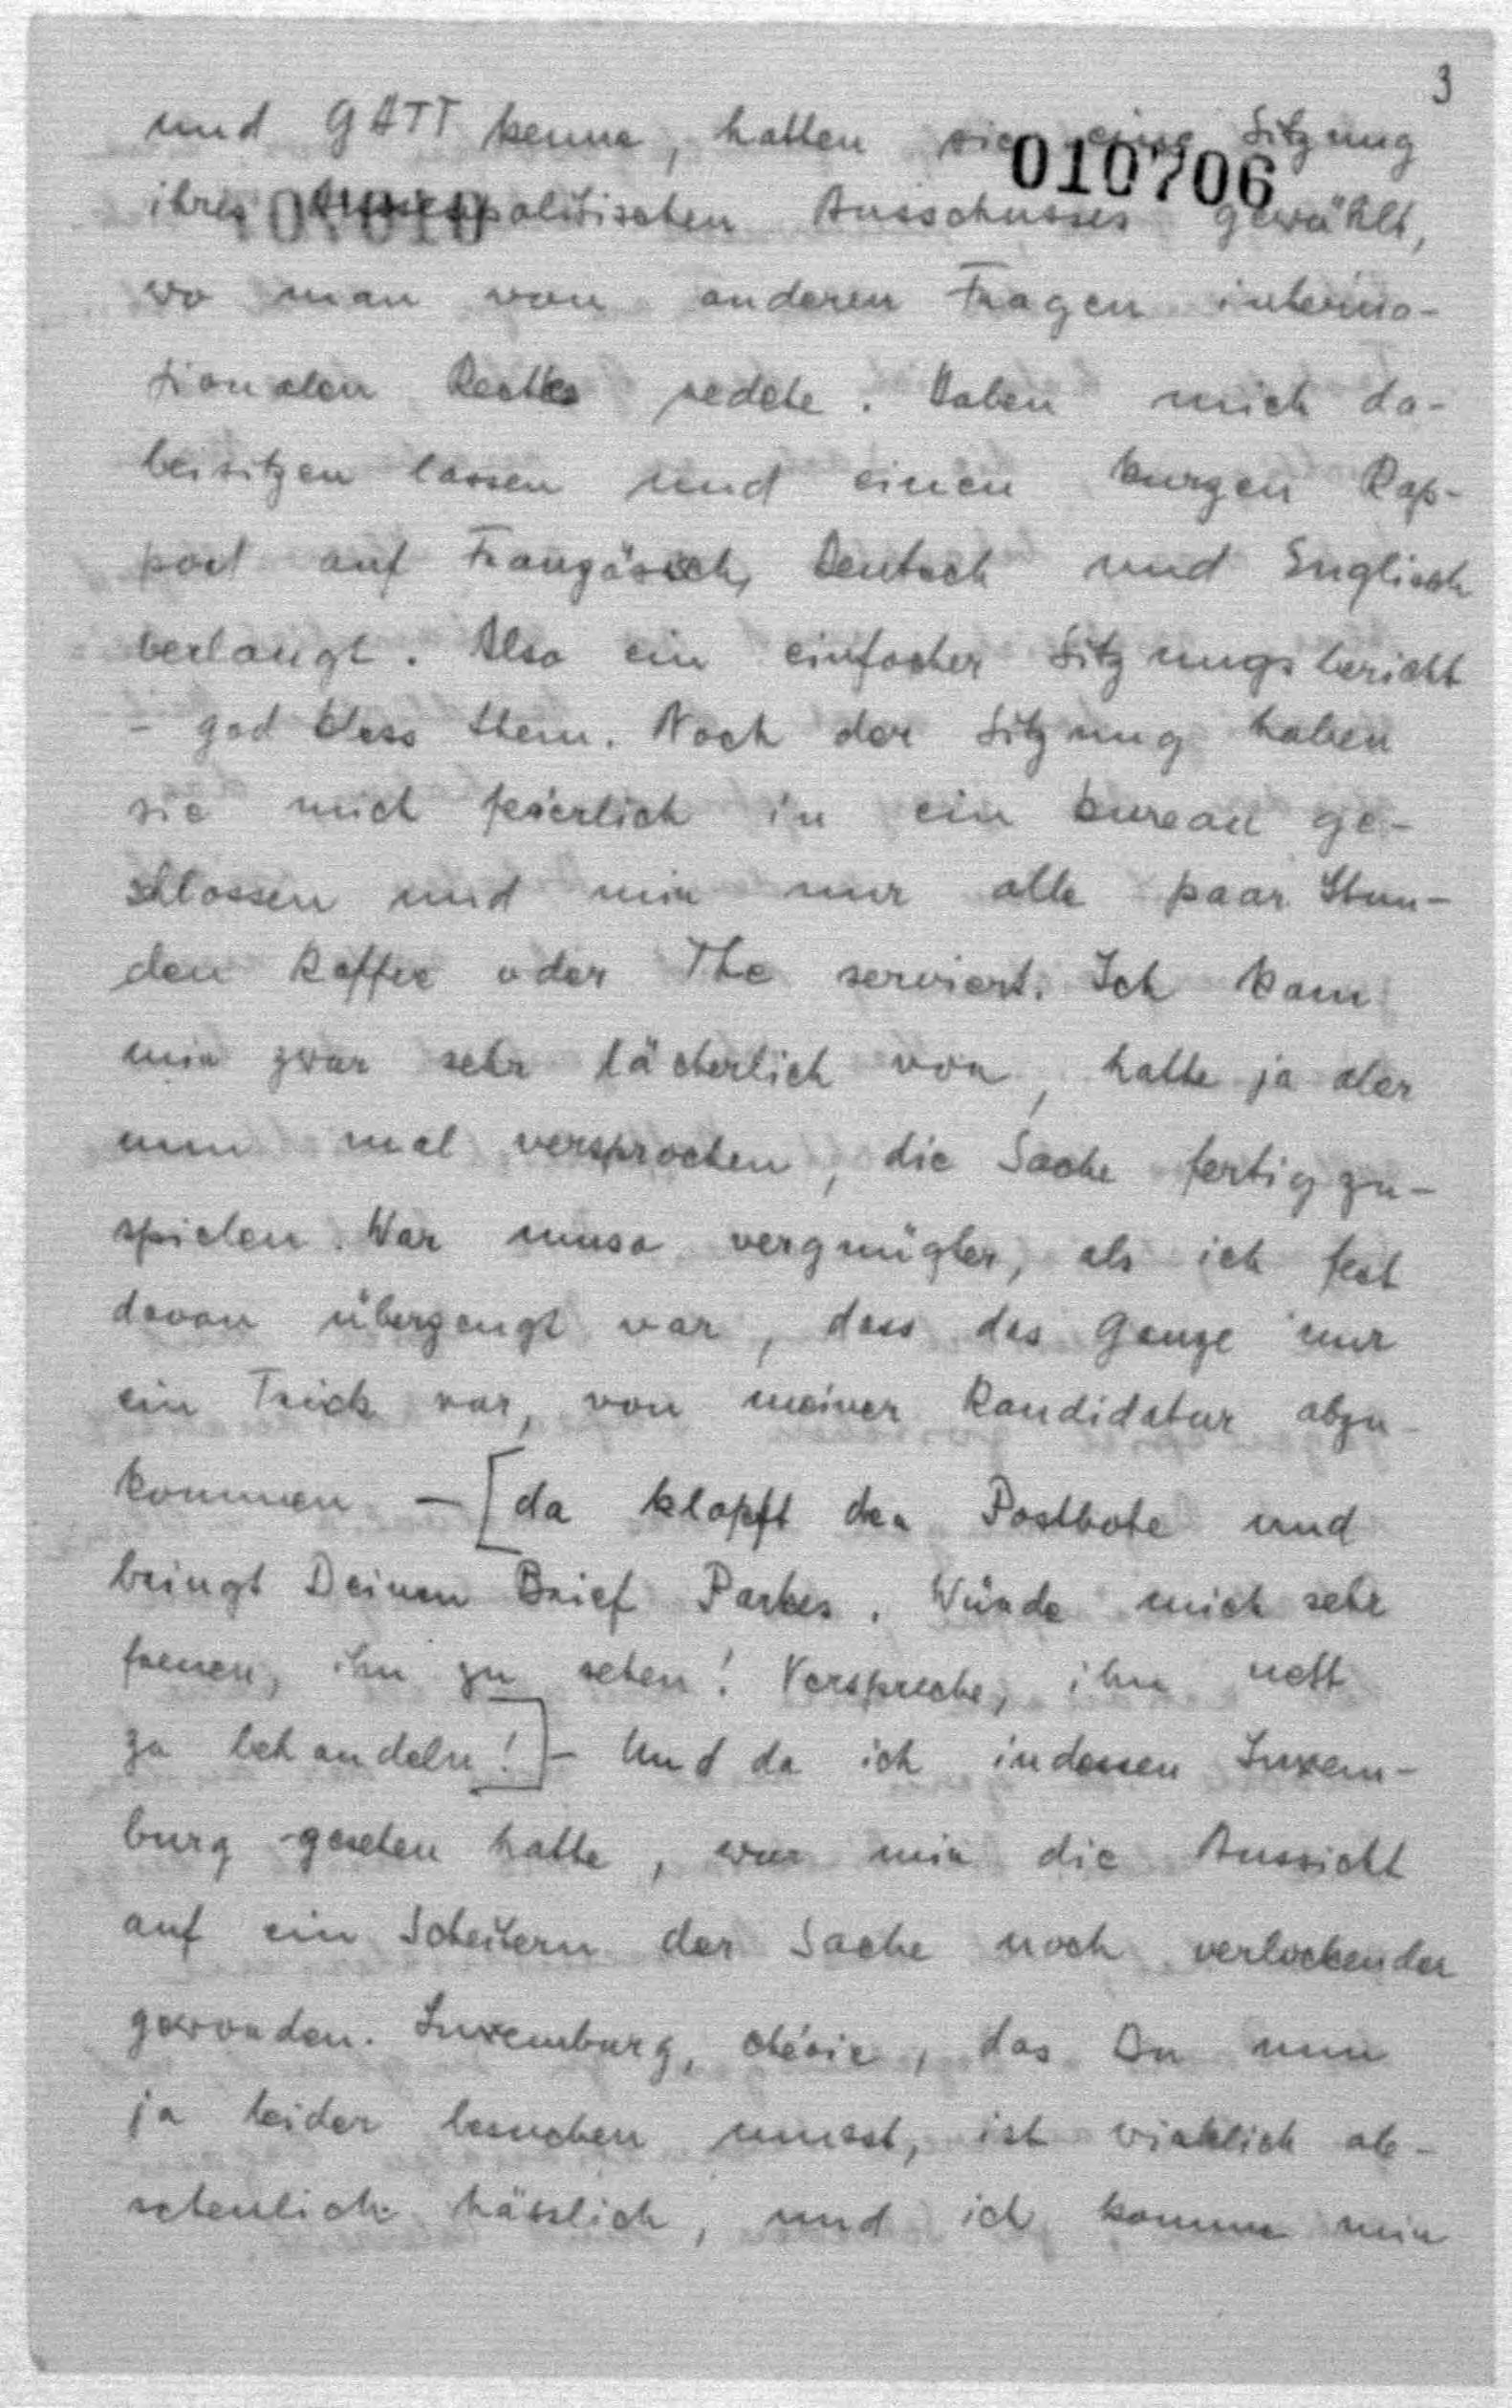 3
und GATT kenne, hatten sie eine Sitzung
010706
ihres Aussenpolitischen Ausschusses gewählt,
wo man von anderen Fragen interna-
tionalen Rechtes redete. Haben mich da-
beisitzen lassen und einen kurzen Rap-
port auf Französisch, Deutsch und Englisch
verlangt. Also ein einfacher Sitzungsbericht
- god bless them. Nach der Sitzung haben
sie mich feierlich in ein bureau ge-
schlossen und mir nur alle paar Stun-
den Kaffee oder The serviert. Ich kam
mir zwar sehr lächerlich vor, hatte ja aber
nun mal versprochen, die Sache fertigzu-
spielen. War umso vergnügter, als ich fest
davon überzeugt war, dass das Ganze nur
ein Trick war, von meiner Kandidatur abzu-
kommen - [da klopft der Postbote und
bringt Deinen Brief Parkes. Würde mich sehr
freuen, ihn zu sehen! Verspreche, ihn nett
zu behandeln!] - Und da ich indessen Luxem-
burg gesehen hatte, war mir die Aussicht
auf ein Scheitern der Sache noch verlockender
geworden. Luxemburg, chérie, das Du nun
ja leider besuchen musst, ist wirklich ab-
scheulich hässlich, und ich komme mir